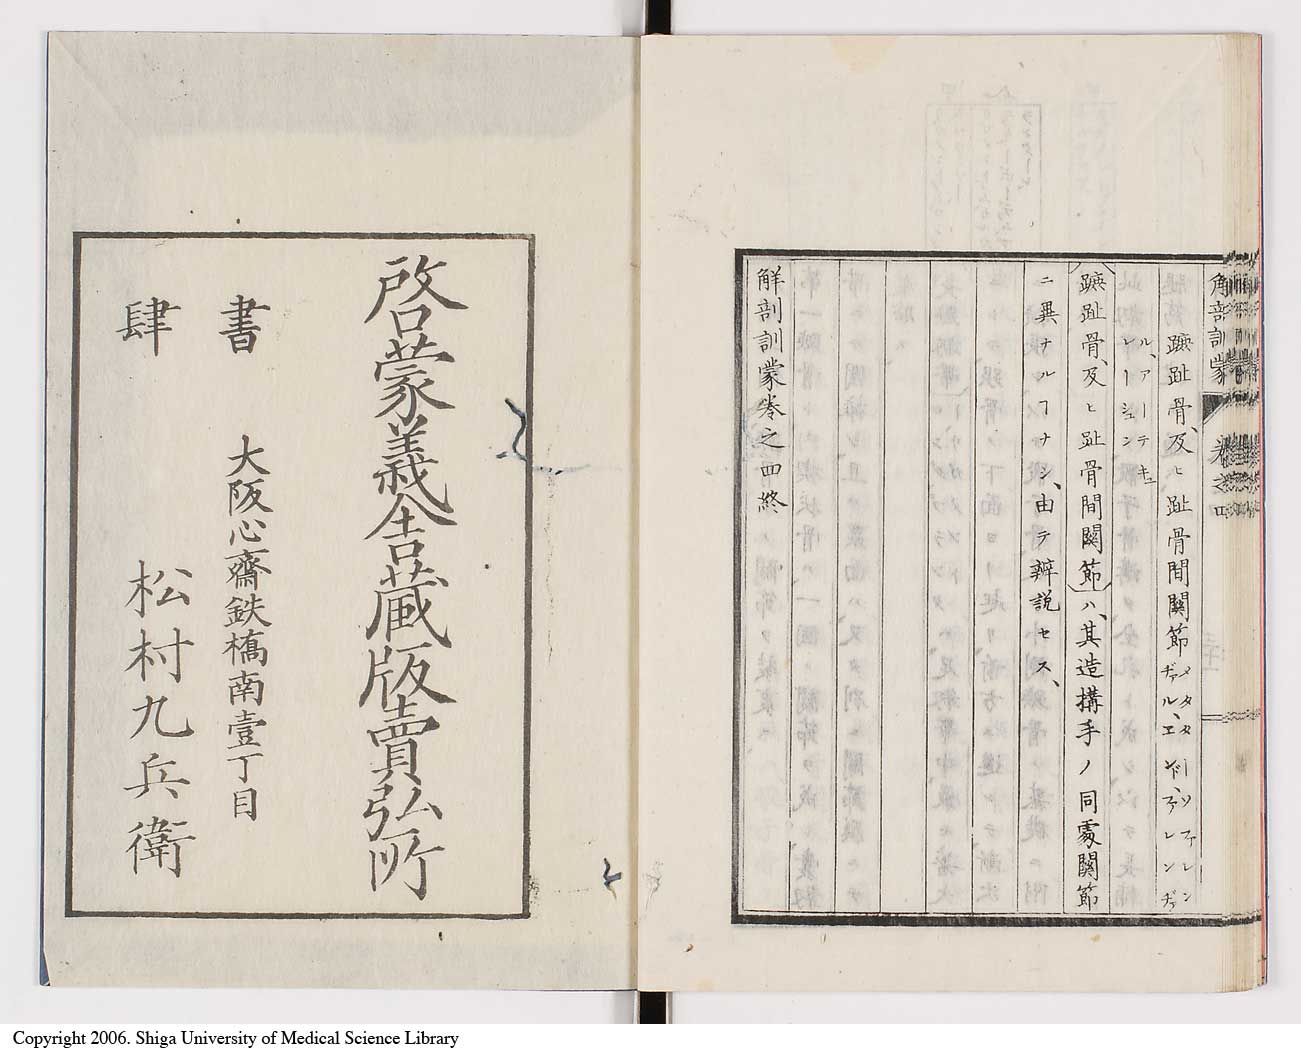 蹠趾骨、及ヒ趾骨間關節メタタールソファレン
ヂァル、エンド、ファレンヂァ
ル、アーテキュ
レーション
蹠趾骨、及ヒ趾骨間關節ハ、其造構手ノ同處關節
ニ異ナルヿナシ、由テ辨説セス、
解剖訓蒙卷之四終
啓蒙義舎蔵版賣弘所
書
肆
大阪心齋鉄橋南壹丁目
松村九兵衛
Copyright 2006. Shiga University of Medical Science Library